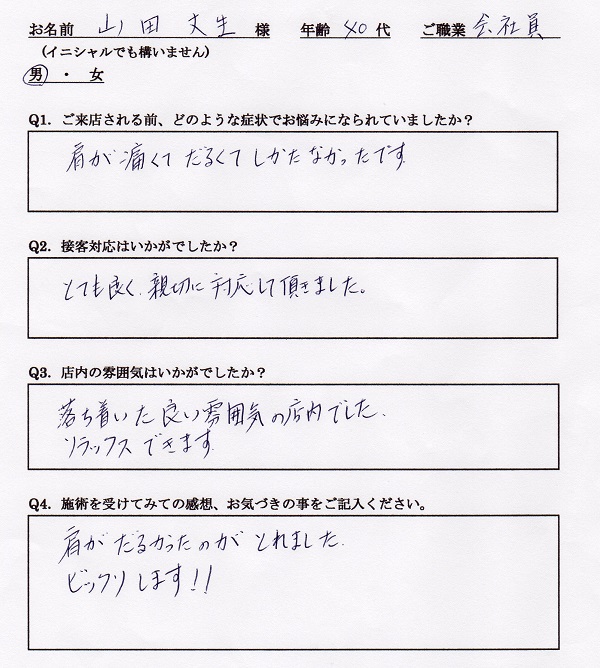 お名前 山田文生 様 年齢 40代 ご職業 会社員
(イニシャルでも構いません)
男・女
Q1. ご来店される前、どのような症状でお悩みになられていましたか?
肩が痛くてだるくてしかたなかったです
Q2. 接客対応はいかがでしたか?
とても良く、親切に対応して頂きました。
Q3. 店内の雰囲気はいかがでしたか?
落ち着いた良い雰囲気の店内でした.
リラックスできます.
Q4. 施術を受けてみての感想、お気づきの事をご記入ください。
肩がだるかったのがとれました.
ビックリします!!